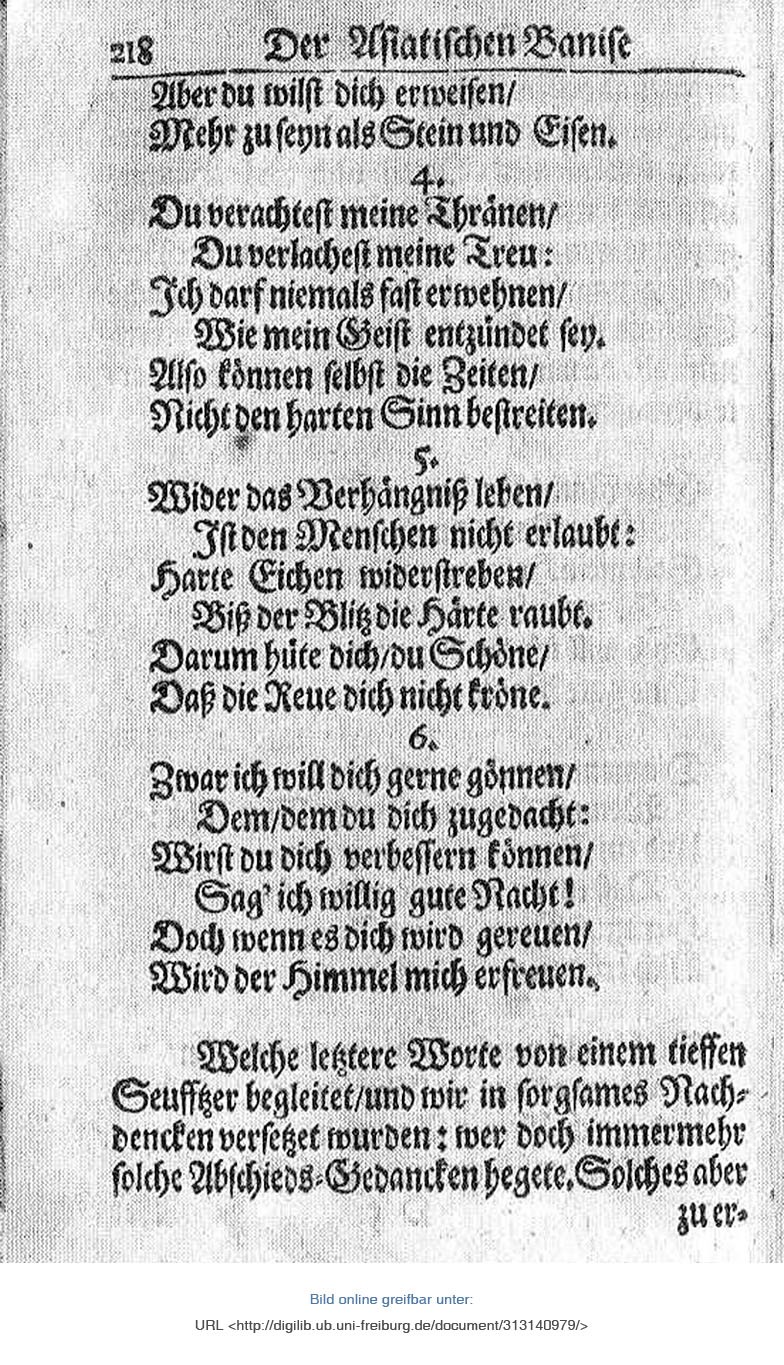 218 Der Asiatischen Banise
Aber du wilst dich erweisen/
Mehr zu seyn als Stein und Eisen.
4.
Du verachtest meine Thränen/
Du verlachest meine Treu:
Ich darf niemals fast erwehnen/
Wie mein Geist entzündet sey.
Also können selbst die Zeiten/
Nicht den harten Sinn bestreiten.
5.
Wider das Verhängniß leben/
Ist den Menschen nicht erlaubt:
Harte Eichen widerstreben/
Biß der Blitz die Härte raubt.
Darum hüte dich/du Schöne/
Daß die Reue dich nicht kröne.
6.
Zwar ich will dich gerne gönnen/
Dem/dem du dich zugedacht:
Wirst du dich verbessern können/
Sag' ich willig gute Nacht!
Doch wenn es dich wird gereuen/
Wird der Himmel mich erfreuen.
Welche letztere Worte von einem tieffen
Seufftzer begleitet/und wir in sorgsames Nach-
dencken versetzet wurden: wer doch immermehr
solche Abschieds-Gedancken hegete. Solches aber
zu er-
Bild online greifbar unter:
URL <http://digilib.ub.uni-freiburg.de/document/313140979/>